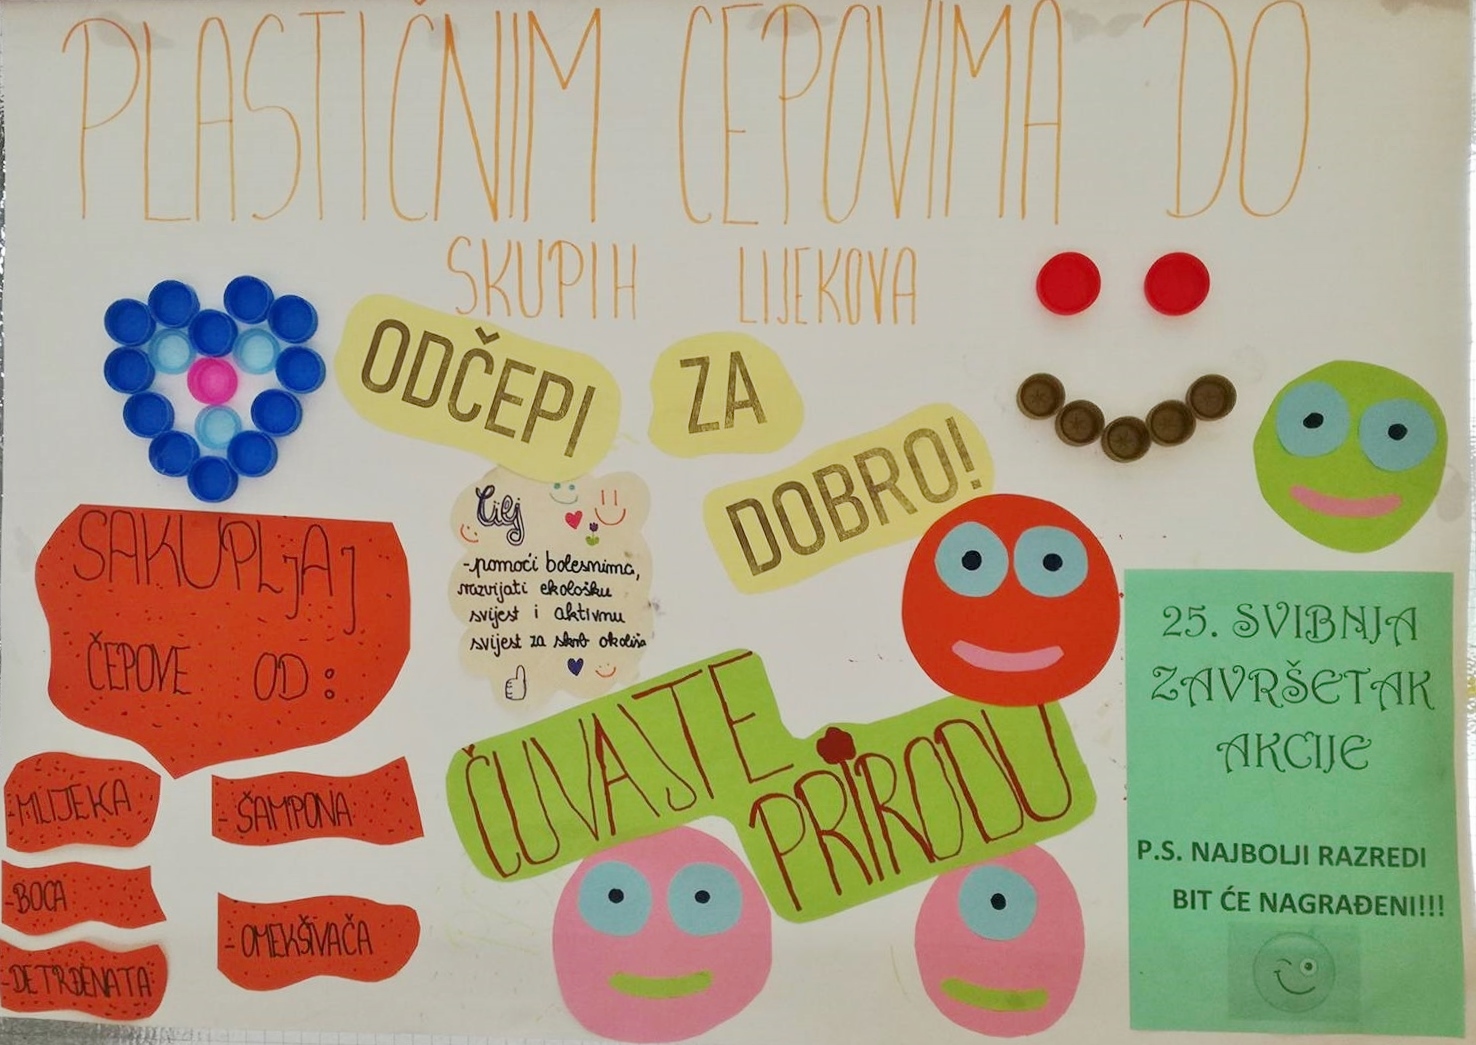 PLASTIČNIM ČEPOVIMA DO
SKUPIH LIJEKOVA
ODČEPI
ZA
DOBRO!
Cilj
-pomoći bolesnima,
razvijati ekološku
svijest i aktivnu
svijest za skrb okoliša
SAKUPLjAj
ČEPOVE OD:
-MLIJEKA
-BOCA
-DETRĐENATA
-ŠAMPONA
-OMEKŠIVAČA
ČUVAJTE
PRIRODU
25. SVIBNJA
ZAVRŠETAK
AKCIJE
P.S. NAJBOLJI RAZREDI
BIT ĆE NAGRAĐENI!!!